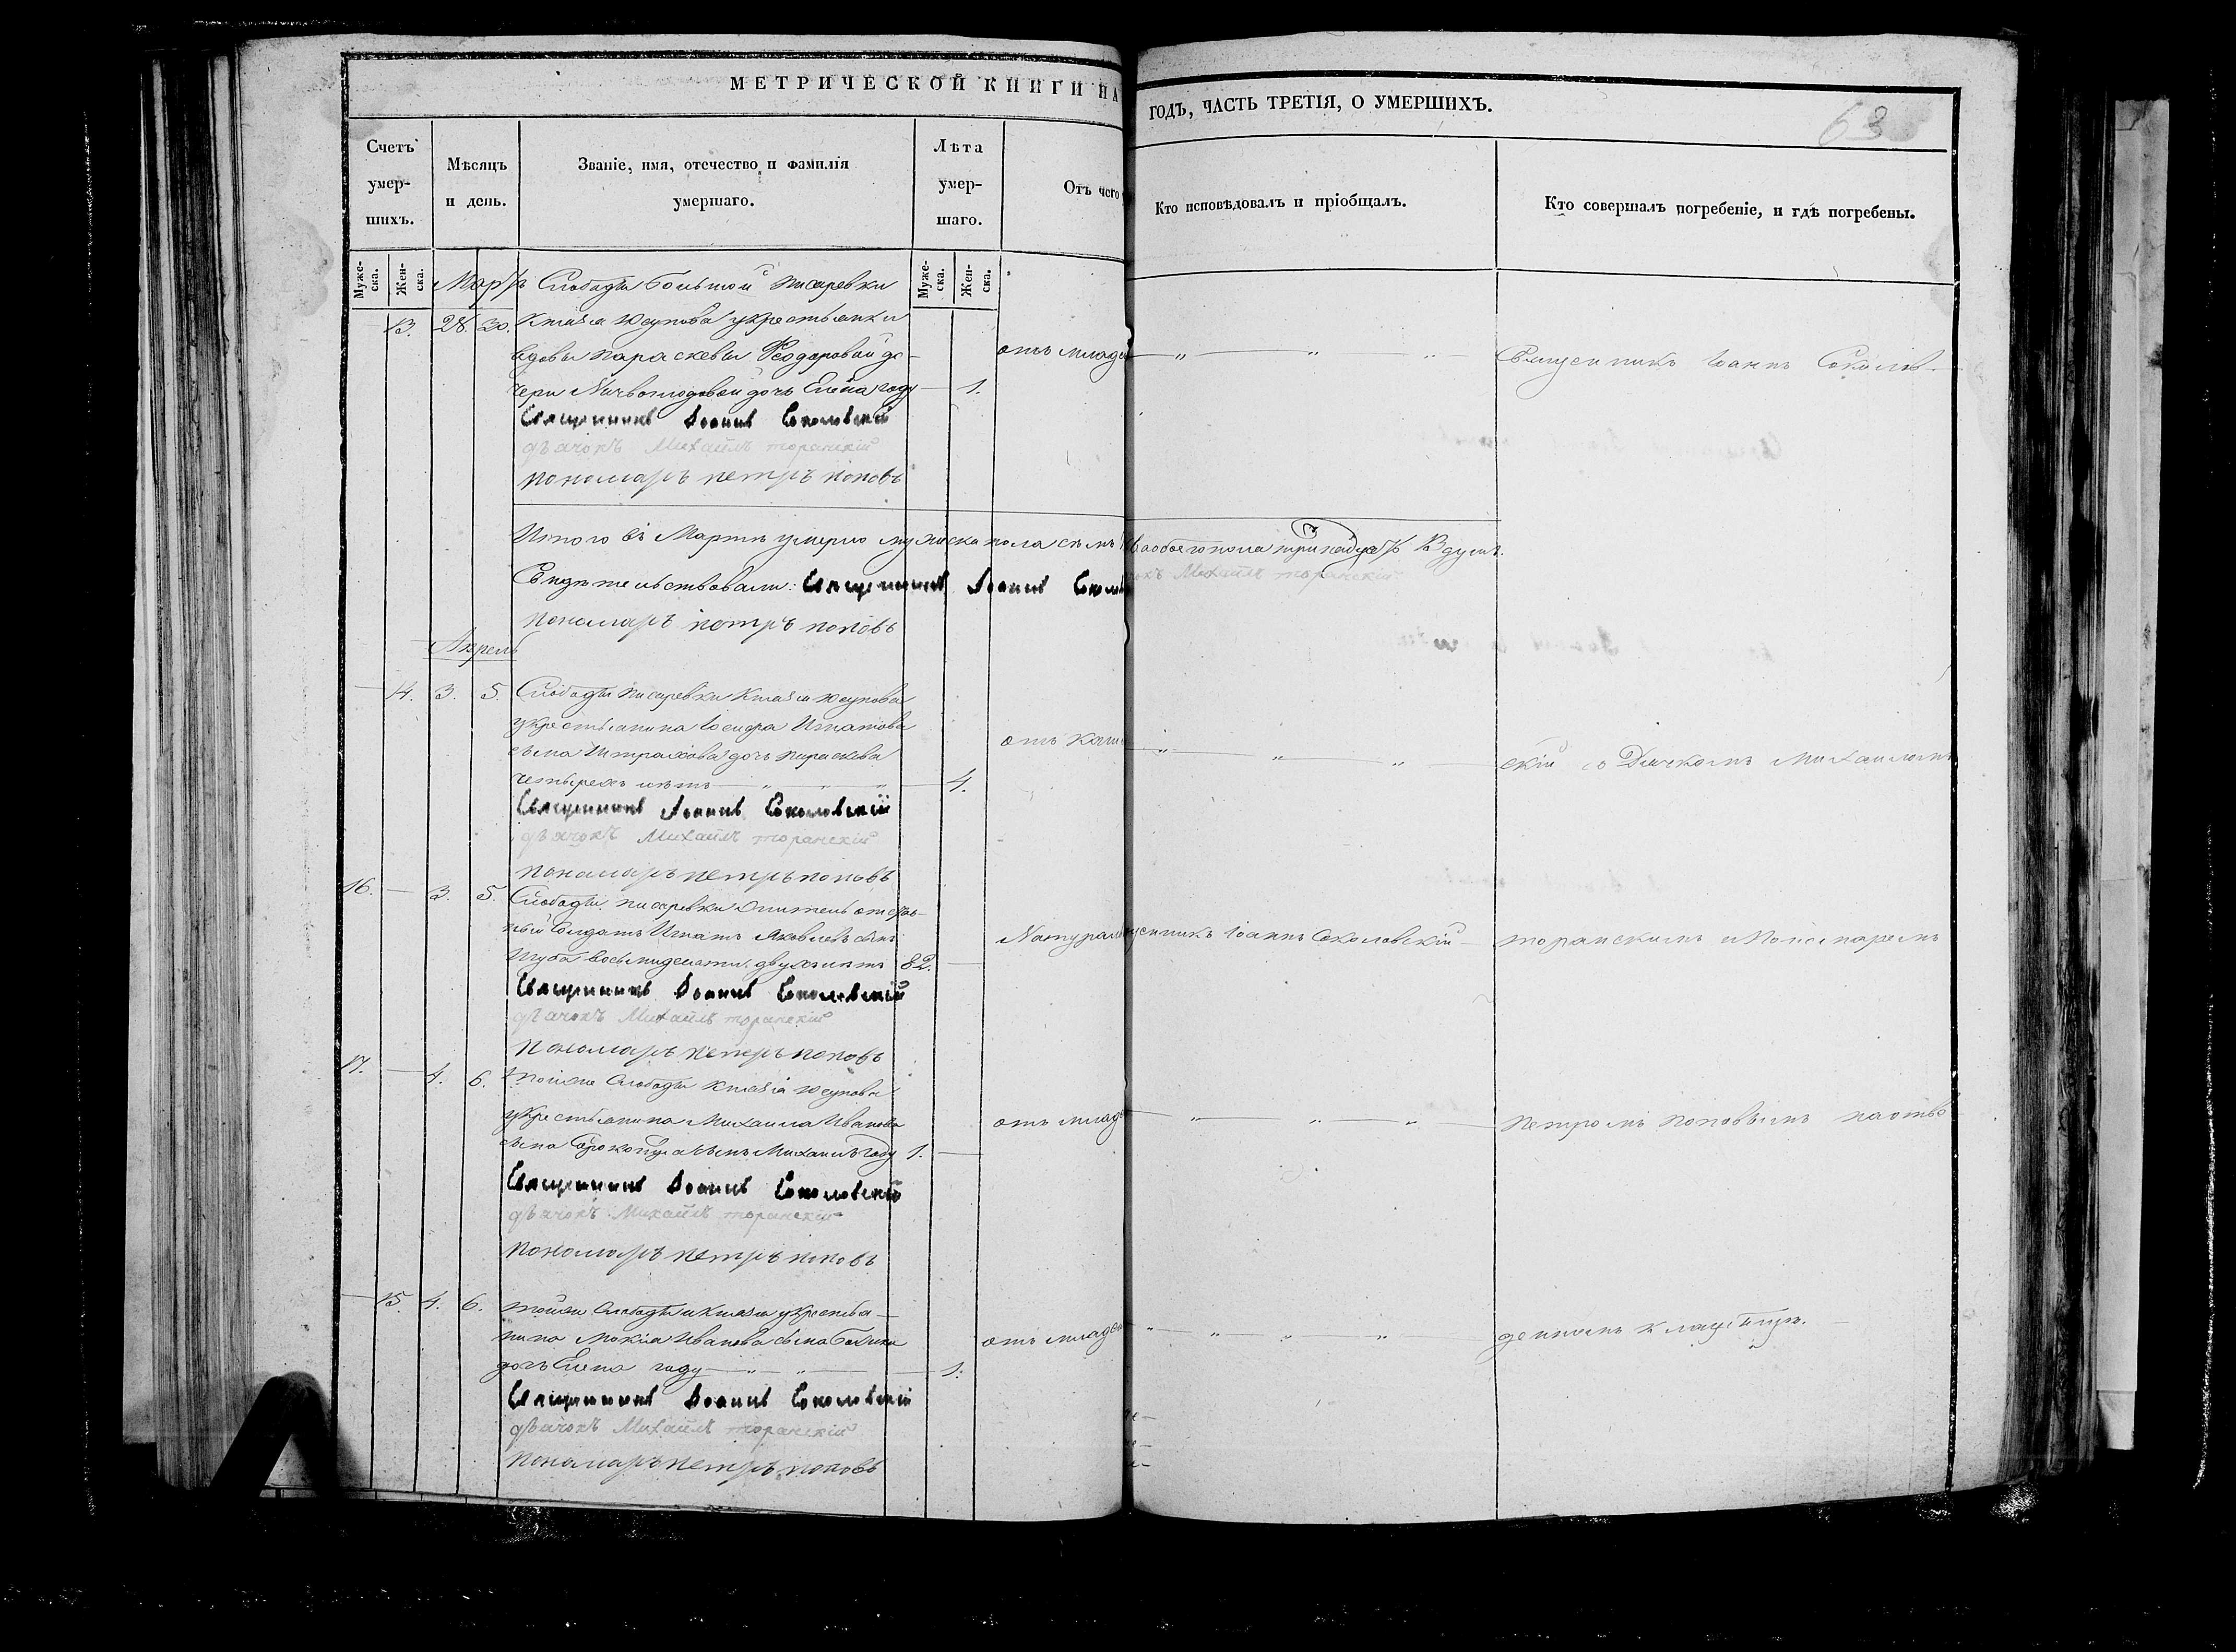 МЕТРИЧЕСКОЙ КНИГИ НА
ГОДЪ, ЧАСТЬ ТРЕТІЯ, О УМЕРШИХЪ.
63
Счетъ умер-шихъ.
Мѣсяцъ и день.
Званіе, имя, отечество и фамилія умершаго.
Лѣта умер-шаго.
Отъ чего
Кто исповѣдовалъ и пріобщалъ.
Кто совершалъ погребеніе, и гдѣ погребены.
Муже-ска.
Жен-ска.
Муже-ска.
Жен-ска.
Мартъ Слободы Большой Писаревки
13. 28. 30. Князя Юсупова укрестьянки
вдовы Параскевы Ѳеодоровой до-
чери дочь Елена году 1. отъ младе
Священникъ Іоаннъ Соколов-
Священникъ Іоаннъ Соколовскій
дьячокъ Михаилъ Торанскій
пономарь петръ поповъ
Итого въ Мартѣ умерло мужеска пола семь обоего пола тринадцать 13 душъ.
Свидѣтельствовали: Священникъ Іоаннъ Сокол Михаилъ Торанскій
пономарь петръ поповъ
Апрель
14. 3. 5. Слободы Писаревки Князя Юсупова
укрестьянина Іосифа Игнатова
сына дочь Параскева
четырехъ лѣтъ 4. отъ каш
скій съ Дьячкомъ Михаиломъ
Священникъ Іоаннъ Соколовскій
дьячокъ Михаилъ Торанскій
пономарь петръ поповъ
16. 3. 5. Слободы Писаревки житель отстав-
ный Солдатъ Игнатъ Яковлевъ сынъ
Шуба восьмидесяти двухъ лѣтъ 82. Натурал
щенникъ Іоаннъ Соколовскій
торанскимъ и Пономаремъ
Священникъ Іоаннъ Соколовскій
дьячокъ Михаилъ Торанскій
пономарь петръ поповъ
17. 4. 6. Тойже Слободы Князя Юсупова
укрестьянина Михаила Иванова
сына сынъ Михаилъ году 1. отъ младе
Петромъ Поповымъ наотве
Священникъ Іоаннъ Соколовскій
дьячокъ Михаилъ Торанскій
пономарь петръ поповъ
15. 4. 6. тойже Слободы и Князя укрестья-
нина Мокія Иванова сына
дочь Елена году 1. отъ младен
денномъ кладбищѣ.
Священникъ Іоаннъ Соколовскій
дьячокъ Михаилъ Торанскій
пономарь петръ поповъ